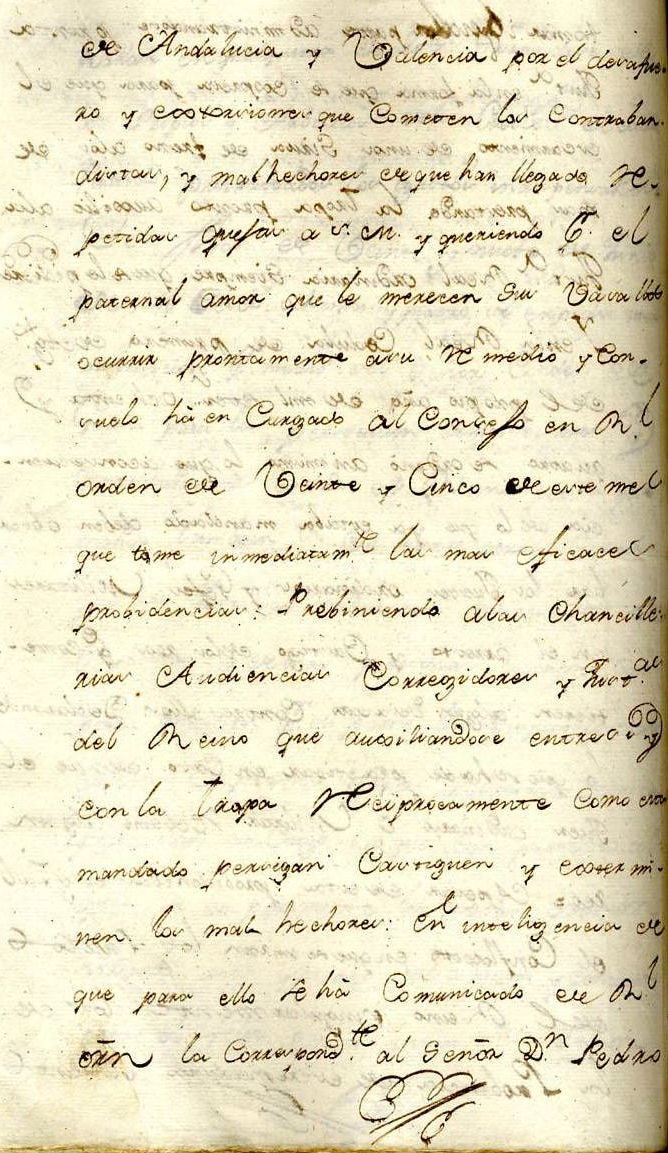 de Andalucia y Valencia por el desafue-
ro y extorsiones que Cometen los Contraban-
distas, y mal hechores de que han llegado re-
petidas quejas a S. M. y queriendo el
paternal amor que le merecen sus Vasallos
ocurrir prontamente a su remedio y Con-
suelo há en Cargado al Consejo en Rl
orden de Veinte y Cinco de este mes
que tome inmediatamte las mas eficaces
probidencias: Prebiniendo a las Chancille-
rias Audiencias Corregidores y Justas
del Reino que auxiliandose entre si y
con la tropa reciprocamente Como esta
mandado persigan Castiguen y extermi-
nen los mal hechores: En inteligencia de
que para ello se há Comunicado de Rl
orn la Correspondte al Señor Dn Pedro